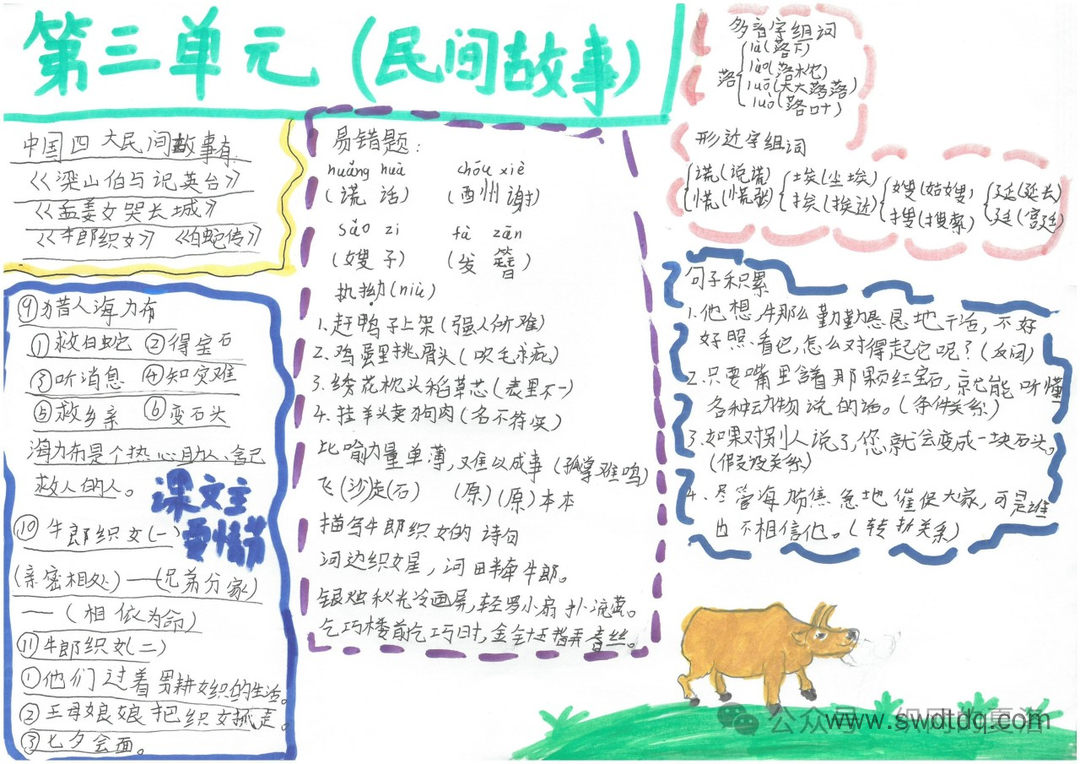 第三单元（民间故事）
中国四大民间故事有
《梁山伯与祝英台》
《孟姜女哭长城》
《牛郎织女》《白蛇传》
⑨猎人海力布
①救白蛇 ②得宝石
③听消息 ④知灾难
⑤救乡亲 ⑥变石头
海力布是个热心助人、舍己
救人的人。
课文主
要情节
⑩牛郎织女(一)
(亲密相处)—(兄弟分家)
—(相依为命)
⑪牛郎织女(二)
①他们过着男耕女织的生活。
②王母娘娘把织女抓走。
③七夕会面。
易错题:
huǎng huà chóu xiè
(谎 话) (酉州 谢)
sǎo zi fà zān
(嫂 子) (发 簪)
执拗(niù)
1.赶鸭子上架(强人所难)
2.鸡蛋里挑骨头(吹毛求疵)
3.绣花枕头稻草芯(表里不一)
4.挂羊头卖狗肉(名不符实)
比喻力量单薄,难以成事(孤掌难鸣)
飞(沙)走(石) (原)(原)本本
描写牛郎织女的诗句
河边织女星,河畔牵牛郎。
银烛秋光冷画屏,轻罗小扇扑流萤。
乞巧楼前乞巧时,金针玉指弄春丝。
多音字组词
落 là(落下)
lào(落枕)
luō(大大落落)
luò(落叶)
形近字组词
谎(说谎) 埃(尘埃) 嫂(姑嫂) 延(延长)
慌(慌张) 挨(挨近) 搜(搜索) 廷(宫廷)
句子积累
1.他想,牛那么勤勤恳恳地干活,不好
好照看它,怎么对得起它呢?(反问)
2.只要嘴里含着那颗红宝石,就能听懂
各种动物说的话。(条件关系)
3.如果对别人说了,您就会变成一块石头。
(假设关系)
4.尽管海力布焦急地催促大家,可是谁
也不相信他。(转折关系)
公众号
www.swdtdq.com